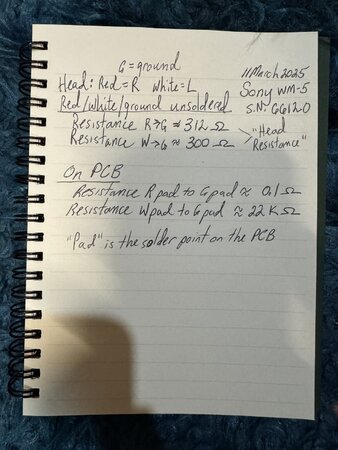 G = ground
11 March 2025
Head: Red = R White = L
Sony WM-5
Red/White/ground unsoldered
S.N: 66120
Resistance R→G ≈ 312 Ω
Resistance W→G ≈ 300 Ω
"Head Resistance"
On PCB
Resistance R pad to G pad ≈ 0.1 Ω
Resistance W pad to G pad ≈ 22 K Ω
"Pad" is the solder point on the PCB